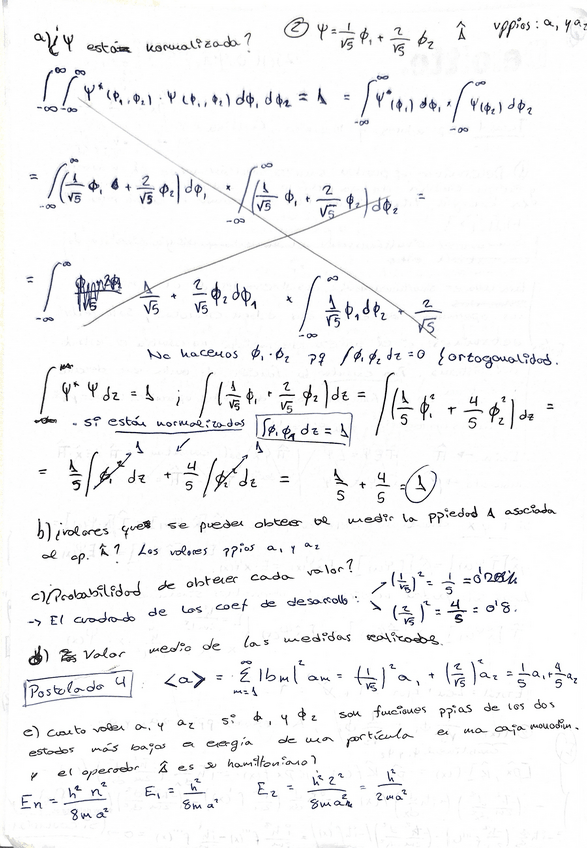 ② Ψ = 1/√5 ϕ₁ + 2/√5 ϕ₂   Â   vppios: a₁ y a₂
a) ¿Ψ está normalizada?
∫_{-∞}^{∞} ∫_{-∞}^{∞} Ψ*(ϕ₁,ϕ₂) · Ψ(ϕ₁,ϕ₂) dϕ₁ dϕ₂ = 1 = ∫_{-∞}^{∞} Ψ*(ϕ₁) dϕ₁ * ∫_{-∞}^{∞} Ψ(ϕ₂) dϕ₂
= ∫_{-∞}^{∞} (1/√5 ϕ₁ + 2/√5 ϕ₂) dϕ₁ * ∫_{-∞}^{∞} (1/√5 ϕ₁ + 2/√5 ϕ₂) dϕ₂ =
= ∫_{-∞}^{∞} 1/√5 + 2/√5 ϕ₂ dϕ₁ * ∫_{-∞}^{∞} 1/√5 ϕ₁ dϕ₂ + 2/√5
No hacemos ϕ₁·ϕ₂ pq ∫ϕ₁ϕ₂ dz = 0 { ortogonalidad.
∫ Ψ* Ψ dz = 1 ; ∫ (1/√5 ϕ₁ + 2/√5 ϕ₂) dz = ∫ (1/5 ϕ₁² + 4/5 ϕ₂²) dz =
- si están normalizados ∫ϕ₁ϕ₁ dz = 1
= 1/5 ∫ϕ₁² dz + 4/5 ∫ϕ₂² dz = 1/5 + 4/5 = 1
b) ¿valores que se pueden obtener al medir la ppiedad A asociada
al op. Â? Los valores ppios a₁ y a₂
c) ¿Probabilidad de obtener cada valor?
→ El cuadrado de los coef de desarrollo: (1/√5)² = 1/5 =
(2/√5)² = 4/5 = 0'8.
d) Valor medio de las medidas realizadas.
Postulado 4 <a> = Σ_{m=1}^{∞} |bm|² am = (1/√5)² a₁ + (2/√5)² a₂ = 1/5 a₁ + 4/5 a₂
e) cuánto valen a₁ y a₂ si ϕ₁ y ϕ₂ son funciones ppias de los dos
estados más bajos en energía de una partícula en una caja monodim.
y el operador Â es su hamiltoniano?
En = h² n²/8ma²   E₁ = h²/8ma²   E₂ = h² 2²/8ma² = h²/2ma²